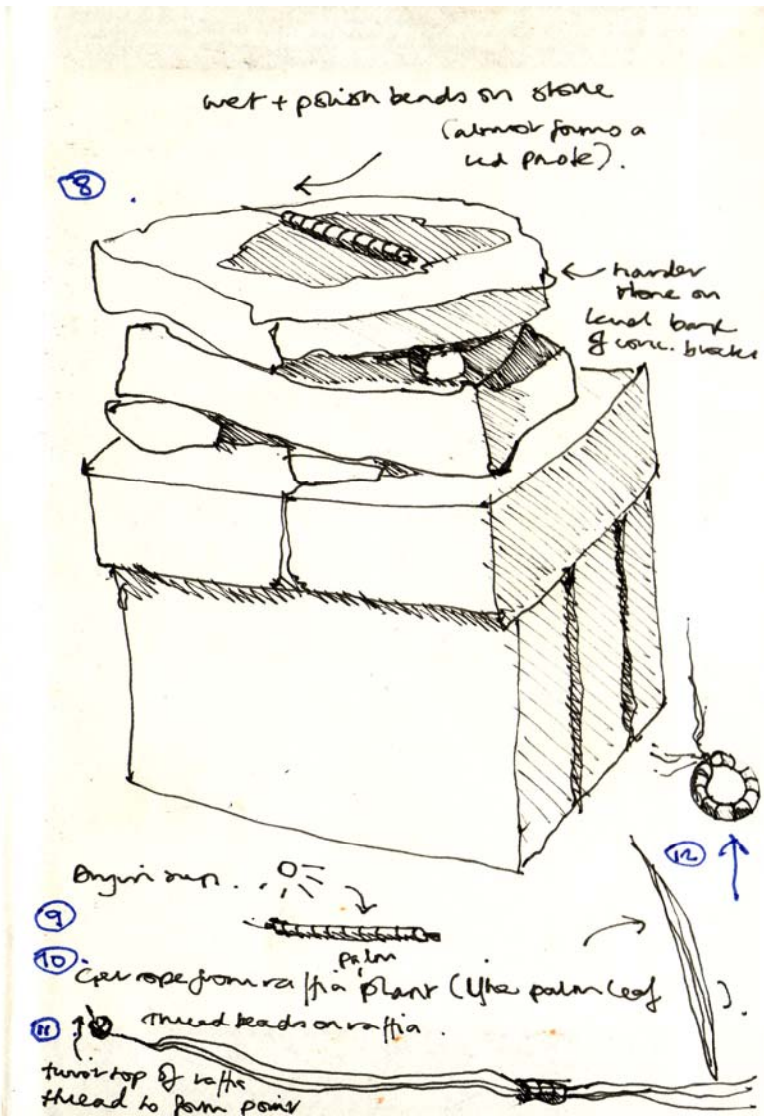 wet + polish beads on stone
(almost forms a
red paste).
8
harder
stone on
level bank
of conc. blocks
12
Dry in sun.
9
palm
10
Get rope from raffia plant (like palm leaf
).
11
thread beads on raffia.
twist top of raffia
thread to form point